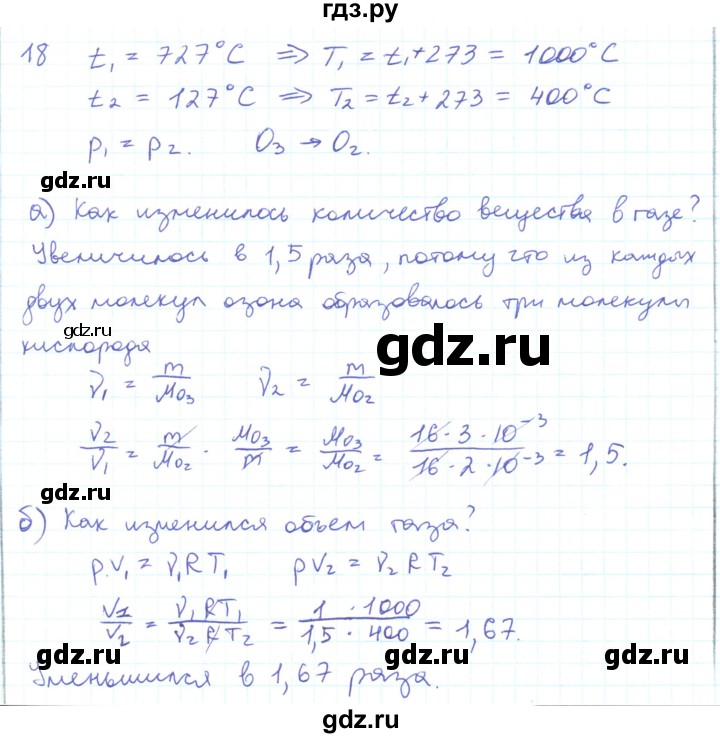 гдз.ру
18 t₁ = 727°C ⇒ T₁ = t₁+273 = 1000°C
t₂ = 127°C ⇒ T₂ = t₂+273 = 400°C
p₁ = p₂. O₃ → O₂.
gdz.ru
а) Как изменилось количество вещества в газе?
gdz.ru
Увеличилось в 1,5 раза, потому что из каждых
двух молекул озона образовалось три молекулы
gdz.ru
gdz.ru
кислорода
ν₁ = m/Mo₃ ν₂ = m/Mo₂
ν₂/ν₁ = m/Mo₂ · Mo₃/m = Mo₃/Mo₂ = 16·3·10⁻³/16·2·10⁻³ = 1,5.
gdz.ru
gdz.ru
б) Как изменился объем газа?
pV₁ = ν₁RT₁ pV₂ = ν₂RT₂
V₁/V₂ = ν₁RT₁/ν₂RT₂ = 1·1000/1,5·400 = 1,67.
gdz.ru
gdz.ru
Уменьшился в 1,67 раза.
gdz.ru